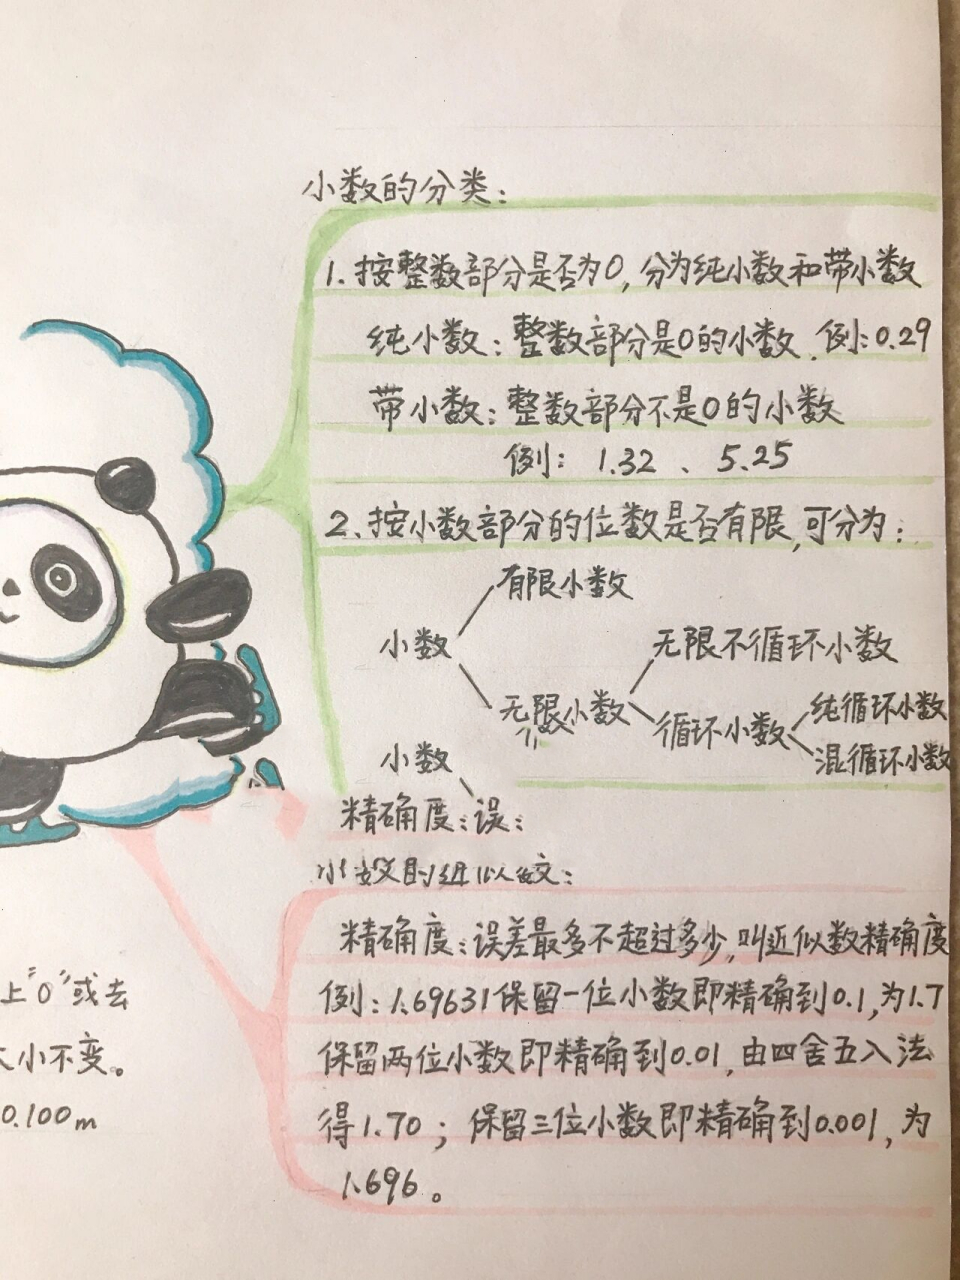 小数的分类:
1.按整数部分是否为0,分为纯小数和带小数
纯小数:整数部分是0的小数.例:0.29
带小数:整数部分不是0的小数
例: 1.32 、 5.25
2.按小数部分的位数是否有限,可分为:
有限小数
小数
无限不循环小数
无限小数
循环小数
纯循环小数
混循环小数
小数
精确度:误:
精确度:误差最多不超过多少,叫近似数精确度
例:1.69631保留一位小数即精确到0.1,为1.7
保留两位小数即精确到0.01,由四舍五入法
得1.70;保留三位小数即精确到0.001,为
1.696。
上"0"或去
大小不变。
0.100m